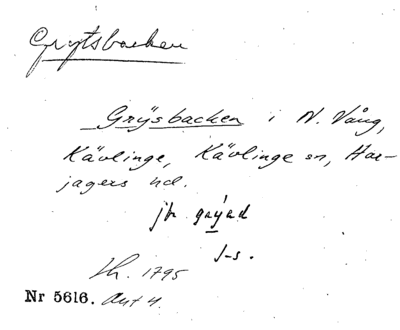 Grytsbacken
Grÿsbacken i N. Vång,
Kävlinge, Kävlinge sn, Har-
jagers hd.
jb
s-s.
1795
Nr 5616. Akt 4.